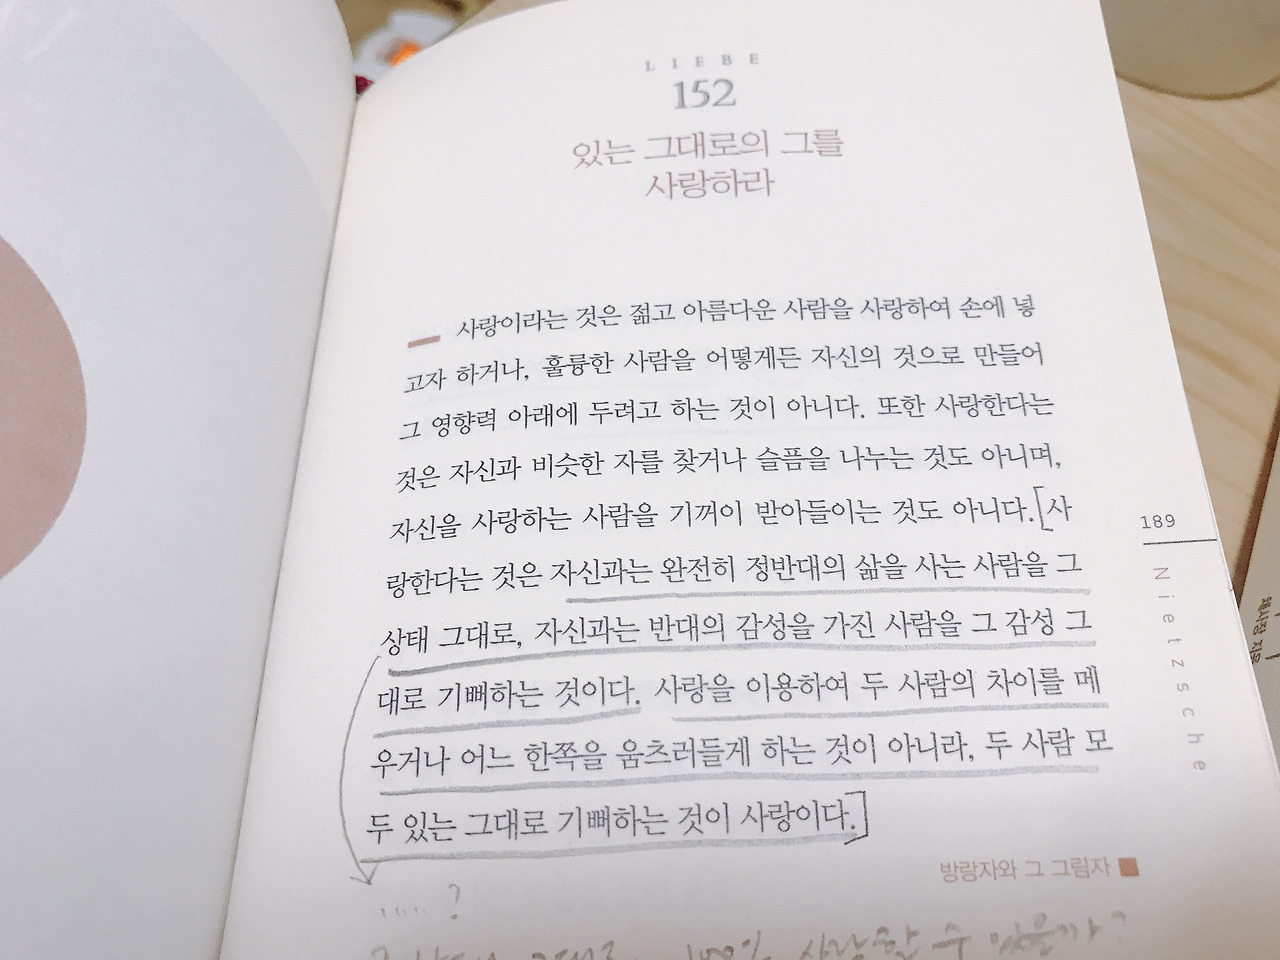 LIEBE
152
있는 그대로의 그를
사랑하라
사랑이라는 것은 젊고 아름다운 사람을 사랑하여 손에 넣
고자 하거나, 훌륭한 사람을 어떻게든 자신의 것으로 만들어
그 영향력 아래에 두려고 하는 것이 아니다. 또한 사랑한다는
것은 자신과 비슷한 자를 찾거나 슬픔을 나누는 것도 아니며,
자신을 사랑하는 사람을 기꺼이 받아들이는 것도 아니다.[사
랑한다는 것은 자신과는 완전히 정반대의 삶을 사는 사람을 그
상태 그대로, 자신과는 반대의 감성을 가진 사람을 그 감성 그
대로 기뻐하는 것이다. 사랑을 이용하여 두 사람의 차이를 메
우거나 어느 한쪽을 움츠러들게 하는 것이 아니라, 두 사람 모
두 있는 그대로 기뻐하는 것이 사랑이다.]
방랑자와 그 그림자
...... ?
189
Nietzsche